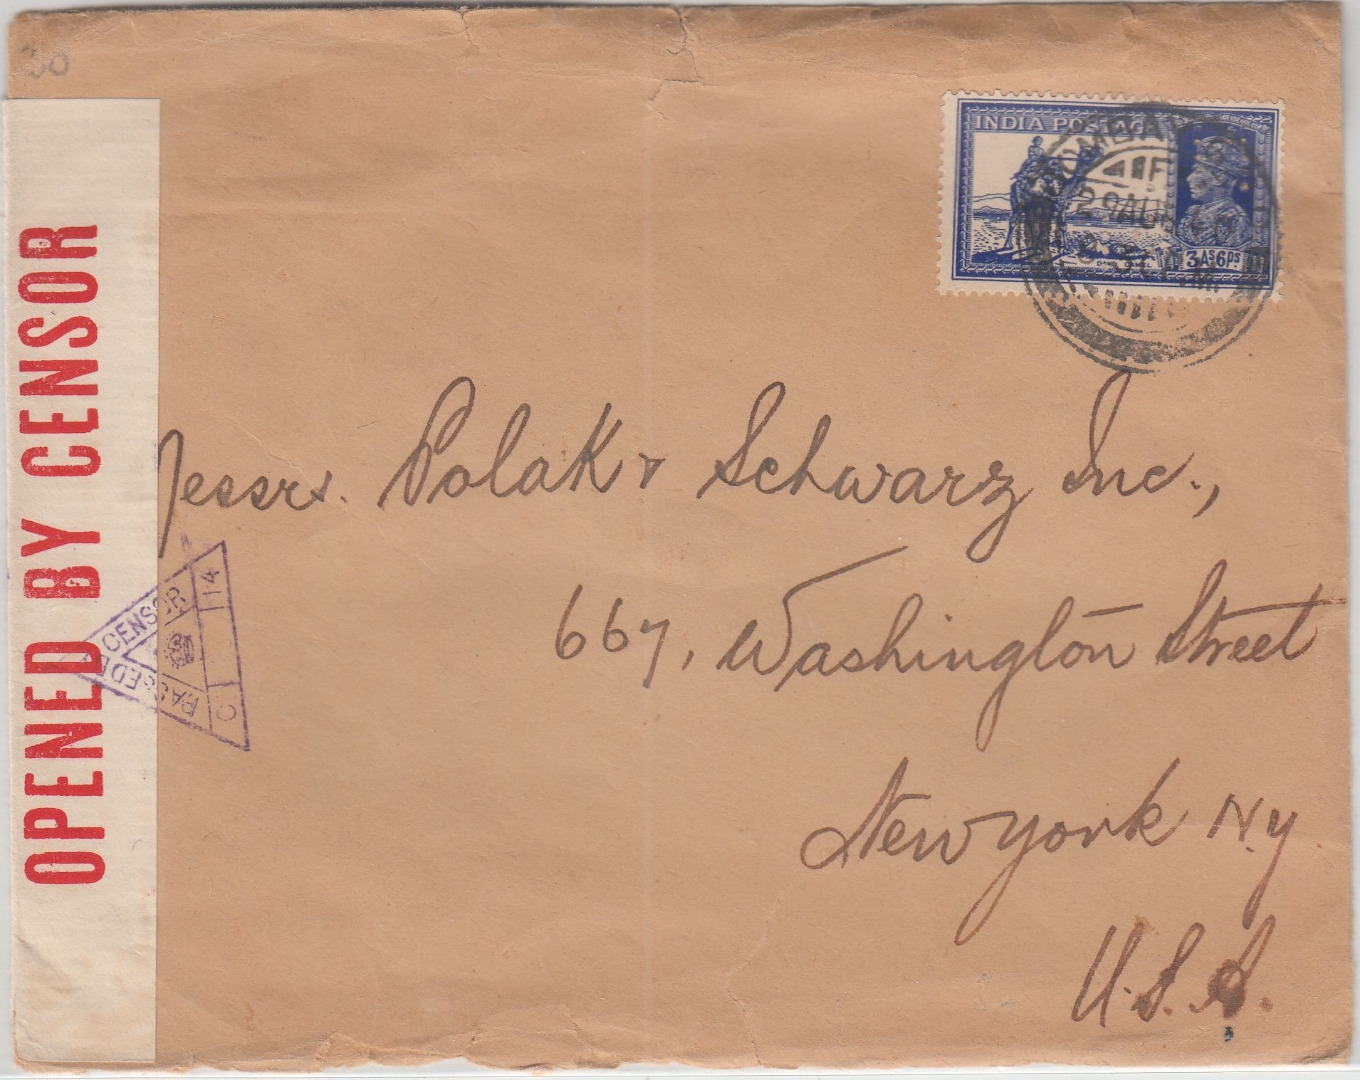 30
INDIA POSTAGE
3As6ps
29 AUG 40
OPENED BY CENSOR
PASSED
CENSOR
C 14
Messrs. Polak & Schwarz Inc.,
667, Washington Street
New York N.y.
U.S.A.